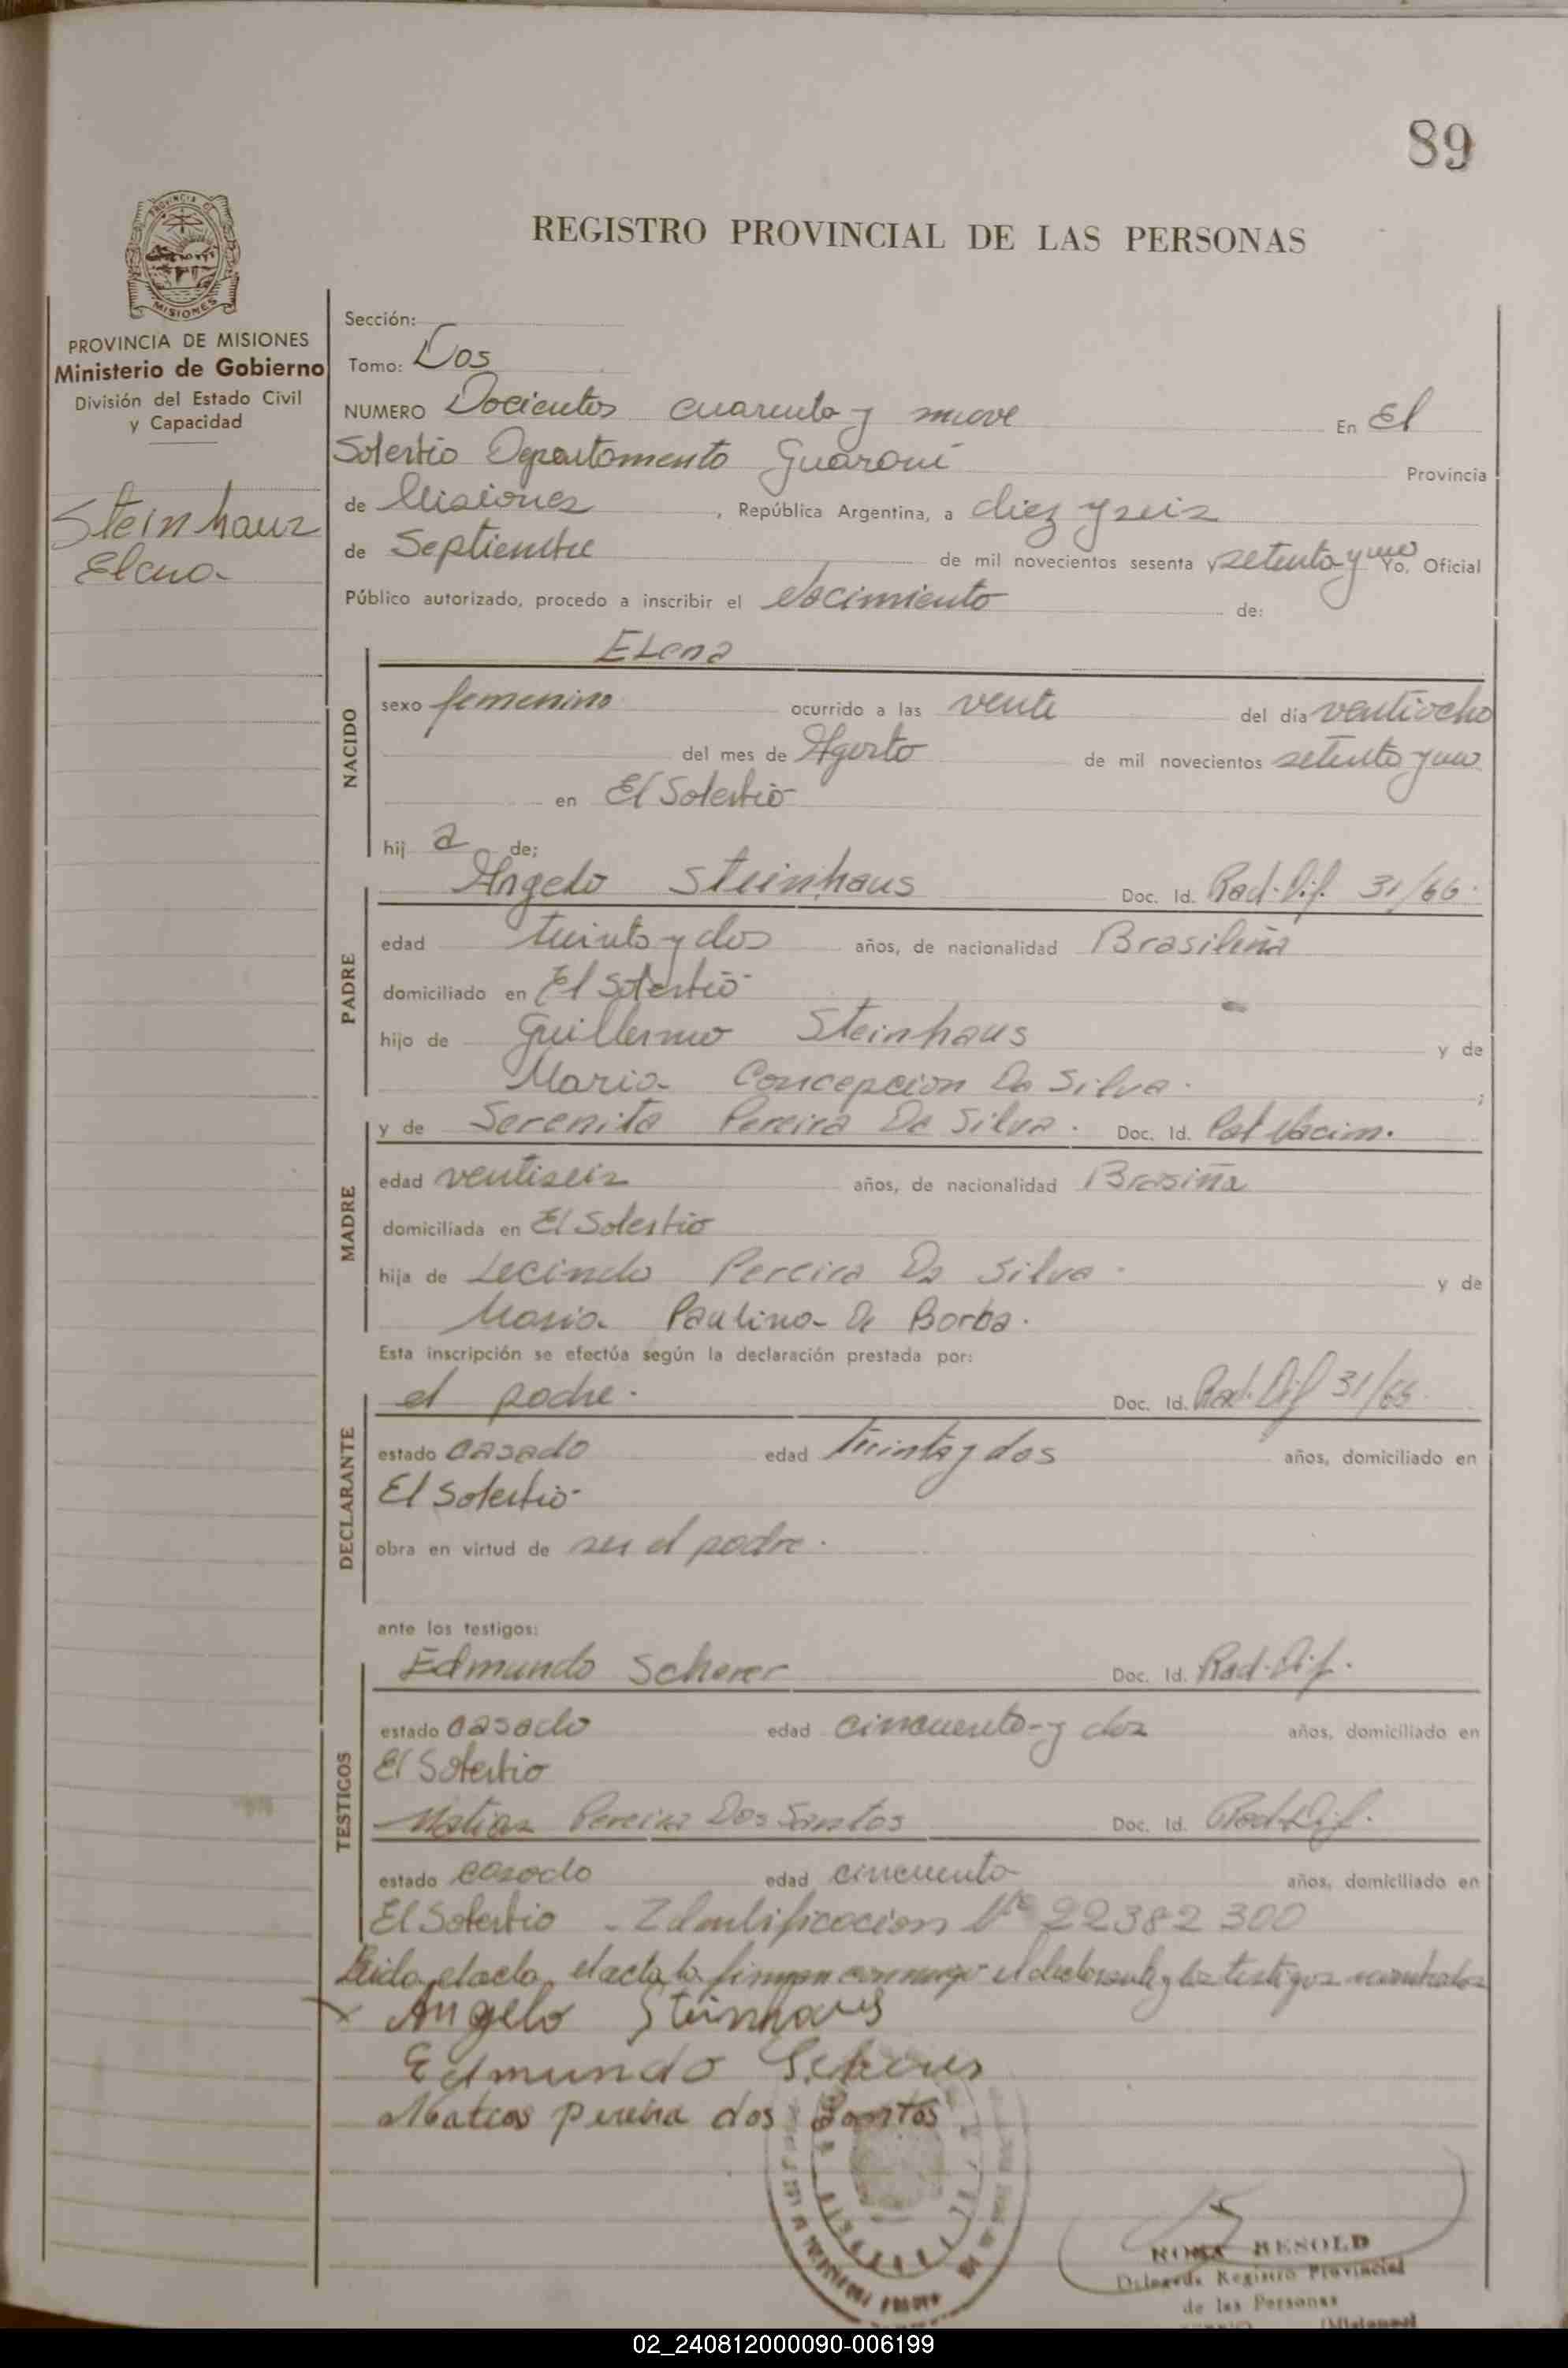 89
REGISTRO PROVINCIAL DE LAS PERSONAS
PROVINCIA DE MISIONES
MISIONES
PROVINCIA DE MISIONES
Ministerio de Gobierno
División del Estado Civil
y Capacidad
Steinhaus
Elena
Sección:
Tomo: Dos
NUMERO Docientos cuarenta y nueve En El
Soberbio Departamento Guaraní Provincia
de Misiones, República Argentina, a diez y seis
de Septiembre de mil novecientos sesenta y setenta y uno Yo, Oficial
Público autorizado, procedo a inscribir el Nacimiento de:
NACIDO
Elena
sexo femenino ocurrido a las vente del día ventiocho
del mes de Agosto de mil novecientos setenta y uno
en El Soberbio
hij a de;
PADRE
Angelo Steinhaus Doc. Id. Rad. Dif. 31/66.
edad treinta y dos años, de nacionalidad Brasileña
domiciliado en El Soberbio
hijo de Guillermo Steinhaus y de
Maria Concepcion Da Silva.;
MADRE
y de Serenita Pereira Da Silva. Doc. Id. Nacim.
edad ventiseis años, de nacionalidad Brasiña
domiciliada en El Soberbio
hija de Lecindo Pereira Da Silva. y de
Maria Paulina De Borba.
Esta inscripción se efectúa según la declaración prestada por:
DECLARANTE
el padre. Doc. Id. Rad. Dif 31/66.
estado casado edad treinta y dos años, domiciliado en
El Soberbio
obra en virtud de ser el padre.
ante los testigos:
TESTIGOS
Edmundo Scherer Doc. Id. Rad. Dif.
estado casado edad cincuenta y dos años, domiciliado en
El Soberbio
Matias Pereira Dos Santos Doc. Id. Rad. Dif.
estado casado edad cincuenta años, domiciliado en
El Soberbio - Identificacion Nº 22382300
Leida el acta, el acta la firman conmigo el declarante y los testigos nombrados
x Angelo Steinhaus
Edmundo Scherer
Pereira dos Santos
ROSA BESOLD
Delegada Registro Provincial
de las Personas
(Misiones)
02_240812000090-006199